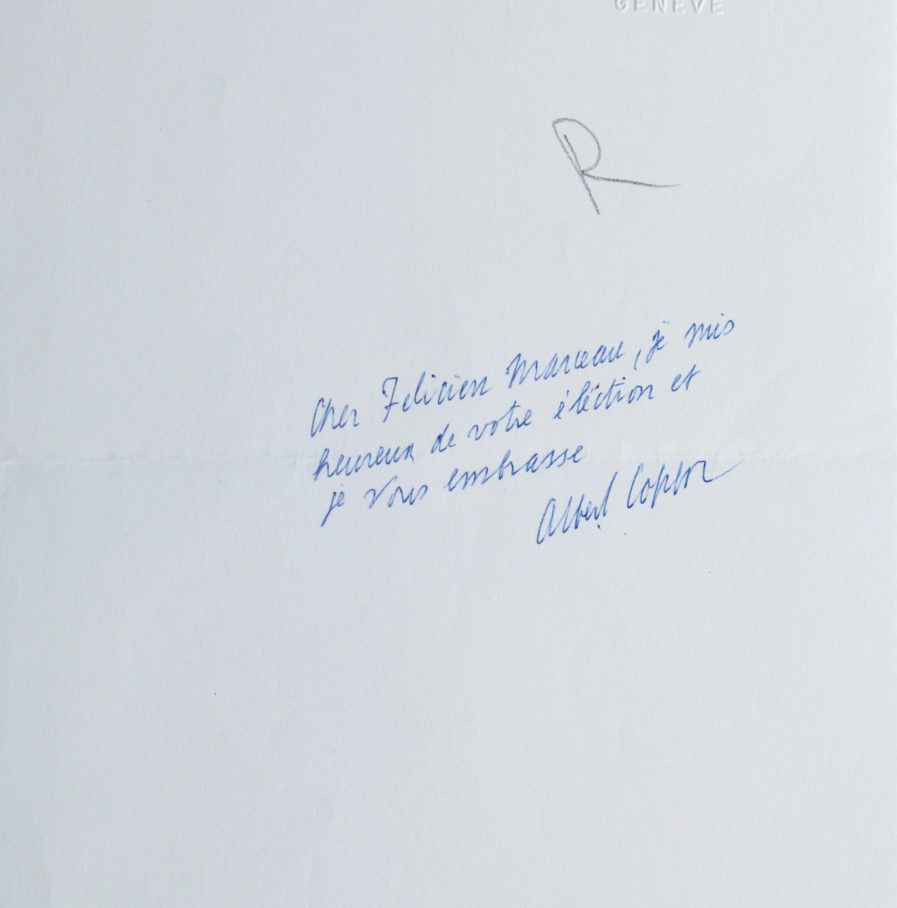 GENEVE
R
Cher Felicien Marceau, je suis
heureux de votre éléction et
je vous embrasse
Albert